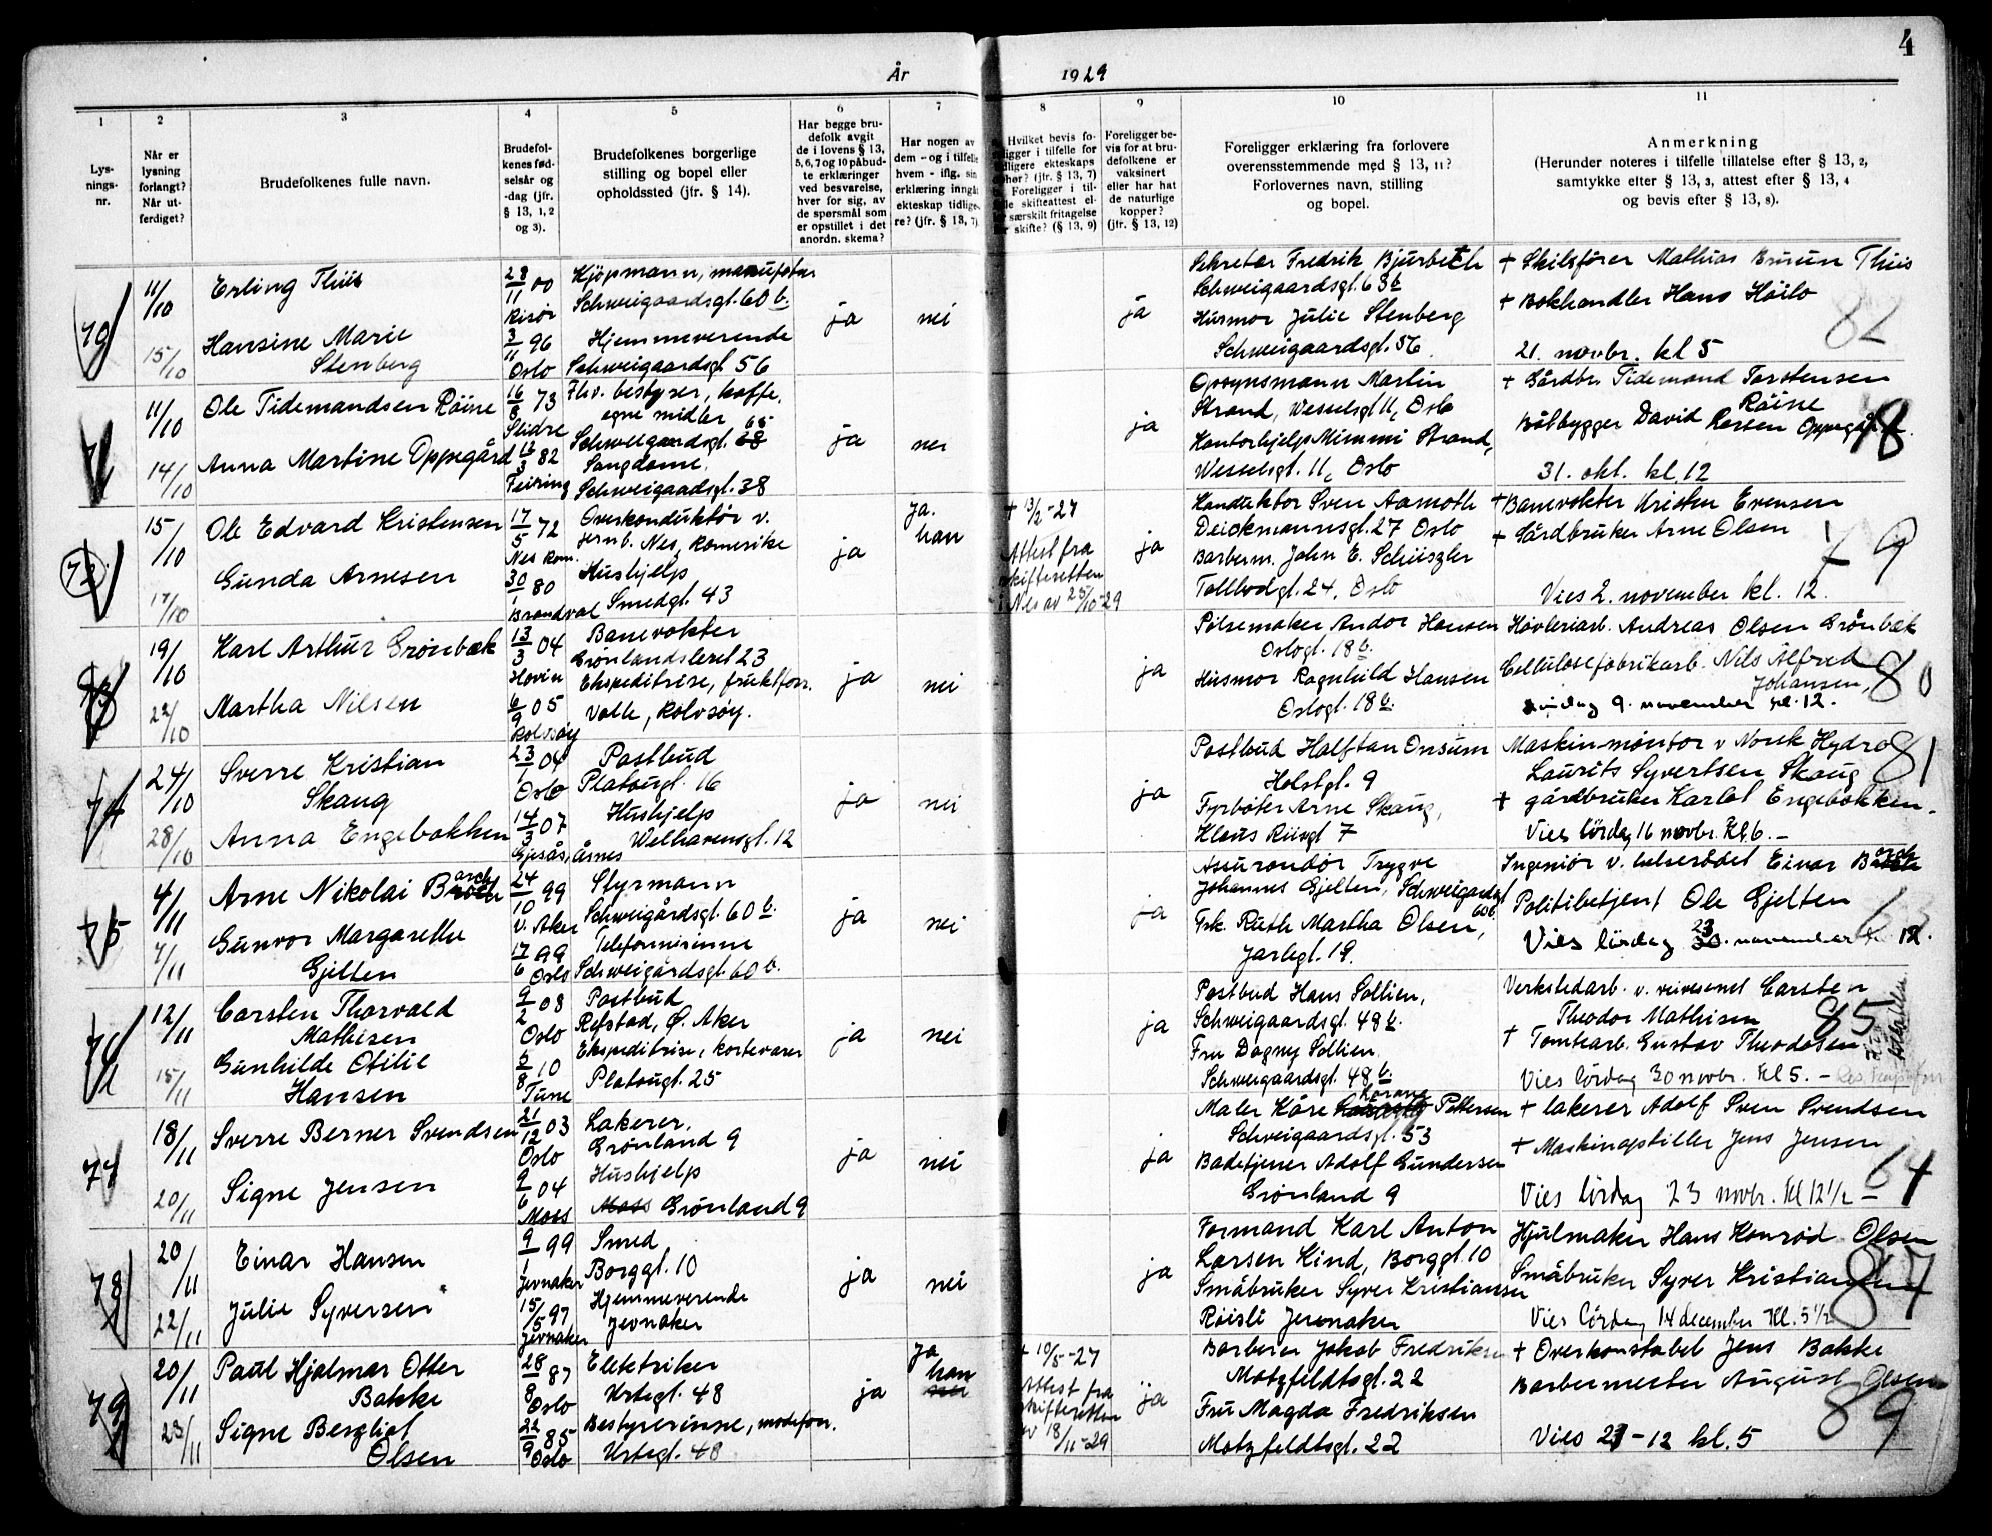 4
År 1929
1
2
3
4
5
6
7
8
9
10
11
Lys-
nings-
nr.
Når er
lysning
forlangt?
Når ut-
ferdiget?
Brudefolkenes fulle navn.
Brudefol-
kenes fød-
selsår og
-dag (jfr.
§ 13, 1, 2
og 3).
Brudefolkenes borgerlige
stilling og bopel eller
opholdssted (jfr. § 14).
Har begge bru-
defolk avgit
de i lovens § 13,
5, 6, 7 og 10 påbud-
te erklæringer
ved besvarelse,
hver for sig, av
de spørsmål som
er opstillet i det
anordn. skema?
Har nogen av
dem - og i tilfelle
hvem - iflg. sin
erklæring inngått
ekteskap tidlige-
re? (jfr. § 13, 7)
Hvilket bevis fo-
ligger i tilfelle for
tidligere ekteskaps
ophør? (jfr. § 13, 7)
Foreligger i til-
skifteattest el-
særskilt fritagelse
skifte? (§ 13, 9)
Foreligger be-
vis for at bru-
defolkene er
vaksinert
eller har hat
de naturlige
kopper?
(jfr. § 13, 12)
Foreligger erklæring fra forlovere
overensstemmende med § 13, 11?
Forlovernes navn, stilling
og bopel.
Anmerkning
(Herunder noteres i tilfelle tillatelse efter § 13, 2,
samtykke efter § 13, 3, attest efter § 13, 4
og bevis efter § 13, 8).
70
11/10
15/10
Erling Thiis
Hansine Marie
Stenberg
28/11 00
Risør
3/11 96
Oslo
Kjøpmann, manufaktur
Schweigaardsgt. 60 b.
Hjemmeværende
Schweigaardsgt 56
ja
nei
ja
Sekretær Fredrik Bjurbeth
Schweigaardsgt. 63 b
Husmor Julie Stenberg
Schweigaardsgt. 56.
+ Skibsfører Mathias Bruun Thiis
+ Bokhandler Hans Høilo
21. novbr. kl 5
82
71
11/10
14/10
Ole Tidemandsen Røine
Anna Martine Oppegård
16/8 73
Slidre
13/3 82
Feiring
Fhv. bestyrer, kaffe,
egne midler 65
Schweigaardsgt. 38
Sangdame.
Schweigaardsgt. 38
ja
nei
ja
Opsynsmann Martin
Strand, Wesselsgt 11, Oslo
Kontorhjelp Mimmi Strand,
Wesselsgt. 11, Oslo
+ Gårdbr. Tidemand Torstensen
Røine
Båtbygger David Larsen Oppegård.
31. okt. kl. 12
78
72
15/10
17/10
Ole Edvard Kristensen
Gunda Arnesen
17/5 72
Nes Rom.
30/1 80
Brandval
Overkonduktør v.
jernb. Nes, Romerike
Hushjelp
Smedgt. 43
ja
Ja.
han
+ 13/2-27
Attest fra
skifteretten
i Nes av 25/10-29
ja
Konduktør Sven Aamoth
Deichmannsgt. 27 Oslo
Barberm. John E. Schüszler
Tollbodgt. 24, Oslo
+ Banevokter Kristen Evensen
+ Gårdbruker Arne Olsen
Vies 2. november kl. 12.
79
73
19/10
22/10
Karl Arthur Grønbæk
Martha Nilsen
13/3 04
Hovin
6/9 05
Rolvsøy
Banevokter
Grønlandsleret 23
Ekspeditrise, fruktforr.
Valle, Rolvsøy.
ja
nei
ja
Pølsemaker Andor Hansen
Oslogt. 18 b.
Husmor Ragnhild Hansen
Oslogt. 18 b.
Høvleriarb. Andreas Olsen Grønbæk
Cellulosefabrikarb. Nils Alfred
Johansen,
9. november kl. 12.
80
74
24/10
28/10
Sverre Kristian
Skaug
Anna Engebakken
23/1 04
Oslo
14/3 07
Gjesås, Åsnes
Postbud
Platougt. 16
Hushjelp
Welhavensgt. 12
ja
nei
ja
Postbud Halftan Onsum
Holstgt. 9
Fyrbøter Arne Skaug,
Klaus Riisgt 7
Maskinmontør v Norsk Hydro
Laurits Syvertsen Skaug
+ gårdbruker Karl Engebakken.
Vies lørdag 16 novbr. Kl. 6. -
81
75
4/11
7/11
Arne Nikolai Barck
Gunvor Margarethe
Gjelten
24/10 99
V. Aker
17/6 99
Oslo
Styrmann
Schweigårdsgt. 60 b.
Telefonistinne
Schweigårdsgt. 60 b.
ja
nei
ja
Assurandør Trygve
Johannes Gjelten, Schweigaardsgt
60 b.
Frk. Ruth Martha Olsen,
Jarlegt. 19.
Ingeniør v. helserådet Einar Barck
Politibetjent Ole Gjelten
Vies lørdag 23. november kl. 12.
76
12/11
15/11
Carsten Thorvald
Mathisen
Gunhilde Otilie
Hansen
9/2 08
Oslo
5/8 10
Tune
Postbud
Refstad, Ø. Aker
Ekspeditrise, kortevarer
Platougt. 25
ja
nei
ja
Postbud Hans Sollien,
Schweigaardsgt. 48 b.
Fru Dagny Sollien
Schweigaardsgt. 48 b.
Verkstedarb. v. veivesenet Carsten
Theodor Mathisen
+ Tomtearb. Gustav Theodosen
Vies lørdag 30 novbr. Kl 5. -
85
77
18/11
20/11
Sverre Berner Svendsen
Signe Jensen
21/12 03
Oslo
9/6 04
Moss
Lakerer.
Grønland 9
Hushjelp
Moss Grønland 9
ja
nei
ja
Maler Kåre Pettersen
Schweigaardsgt. 53
Badetjener Adolf Gundersen
Grønland 9
+ lakerer Adolf Sven Svendsen
+ Maskinopstiller Jens Jensen
Vies lørdag 23 novbr. Kl 12 1/2 -
64
78
20/11
22/11
Einar Hansen
Julie Syversen
9/1 99
Jevnaker
15/5 97
Jevnaker
Smed
Borggt. 10
Hjemmeværende
Jevnaker
ja
nei
ja
Formand Karl Anton
Larsen Kind, Borggt. 10
Småbruker Syver Kristiansen
Røisli Jevnaker
Hjulmaker Hans Konrad Olsen
Småbruker Syver Kristiansen
Vies Lørdag 14 december Kl. 5 1/2
87
79
20/11
23/11
Paul Hjalmar Otter
Bakke
Signe Bergliot
Olsen
28/8 87
Oslo
22/9 85
Oslo
Elektriker
Urtegt. 48
Bestyrerinne, modeforr.
Urtegt. 48
ja
Ja
han
nei
+ 10/5-27
Attest fra
skifteretten
av 18/11-29
ja
Barberer Jakob Fredriksen
Motzfeldtsgt. 22
Fru Magda Fredriksen
Motzfeldtsgt. 22
+ Overkonstabel Jens Bakke
Barbermester August Olsen
Vies 21-12 kl. 5
89